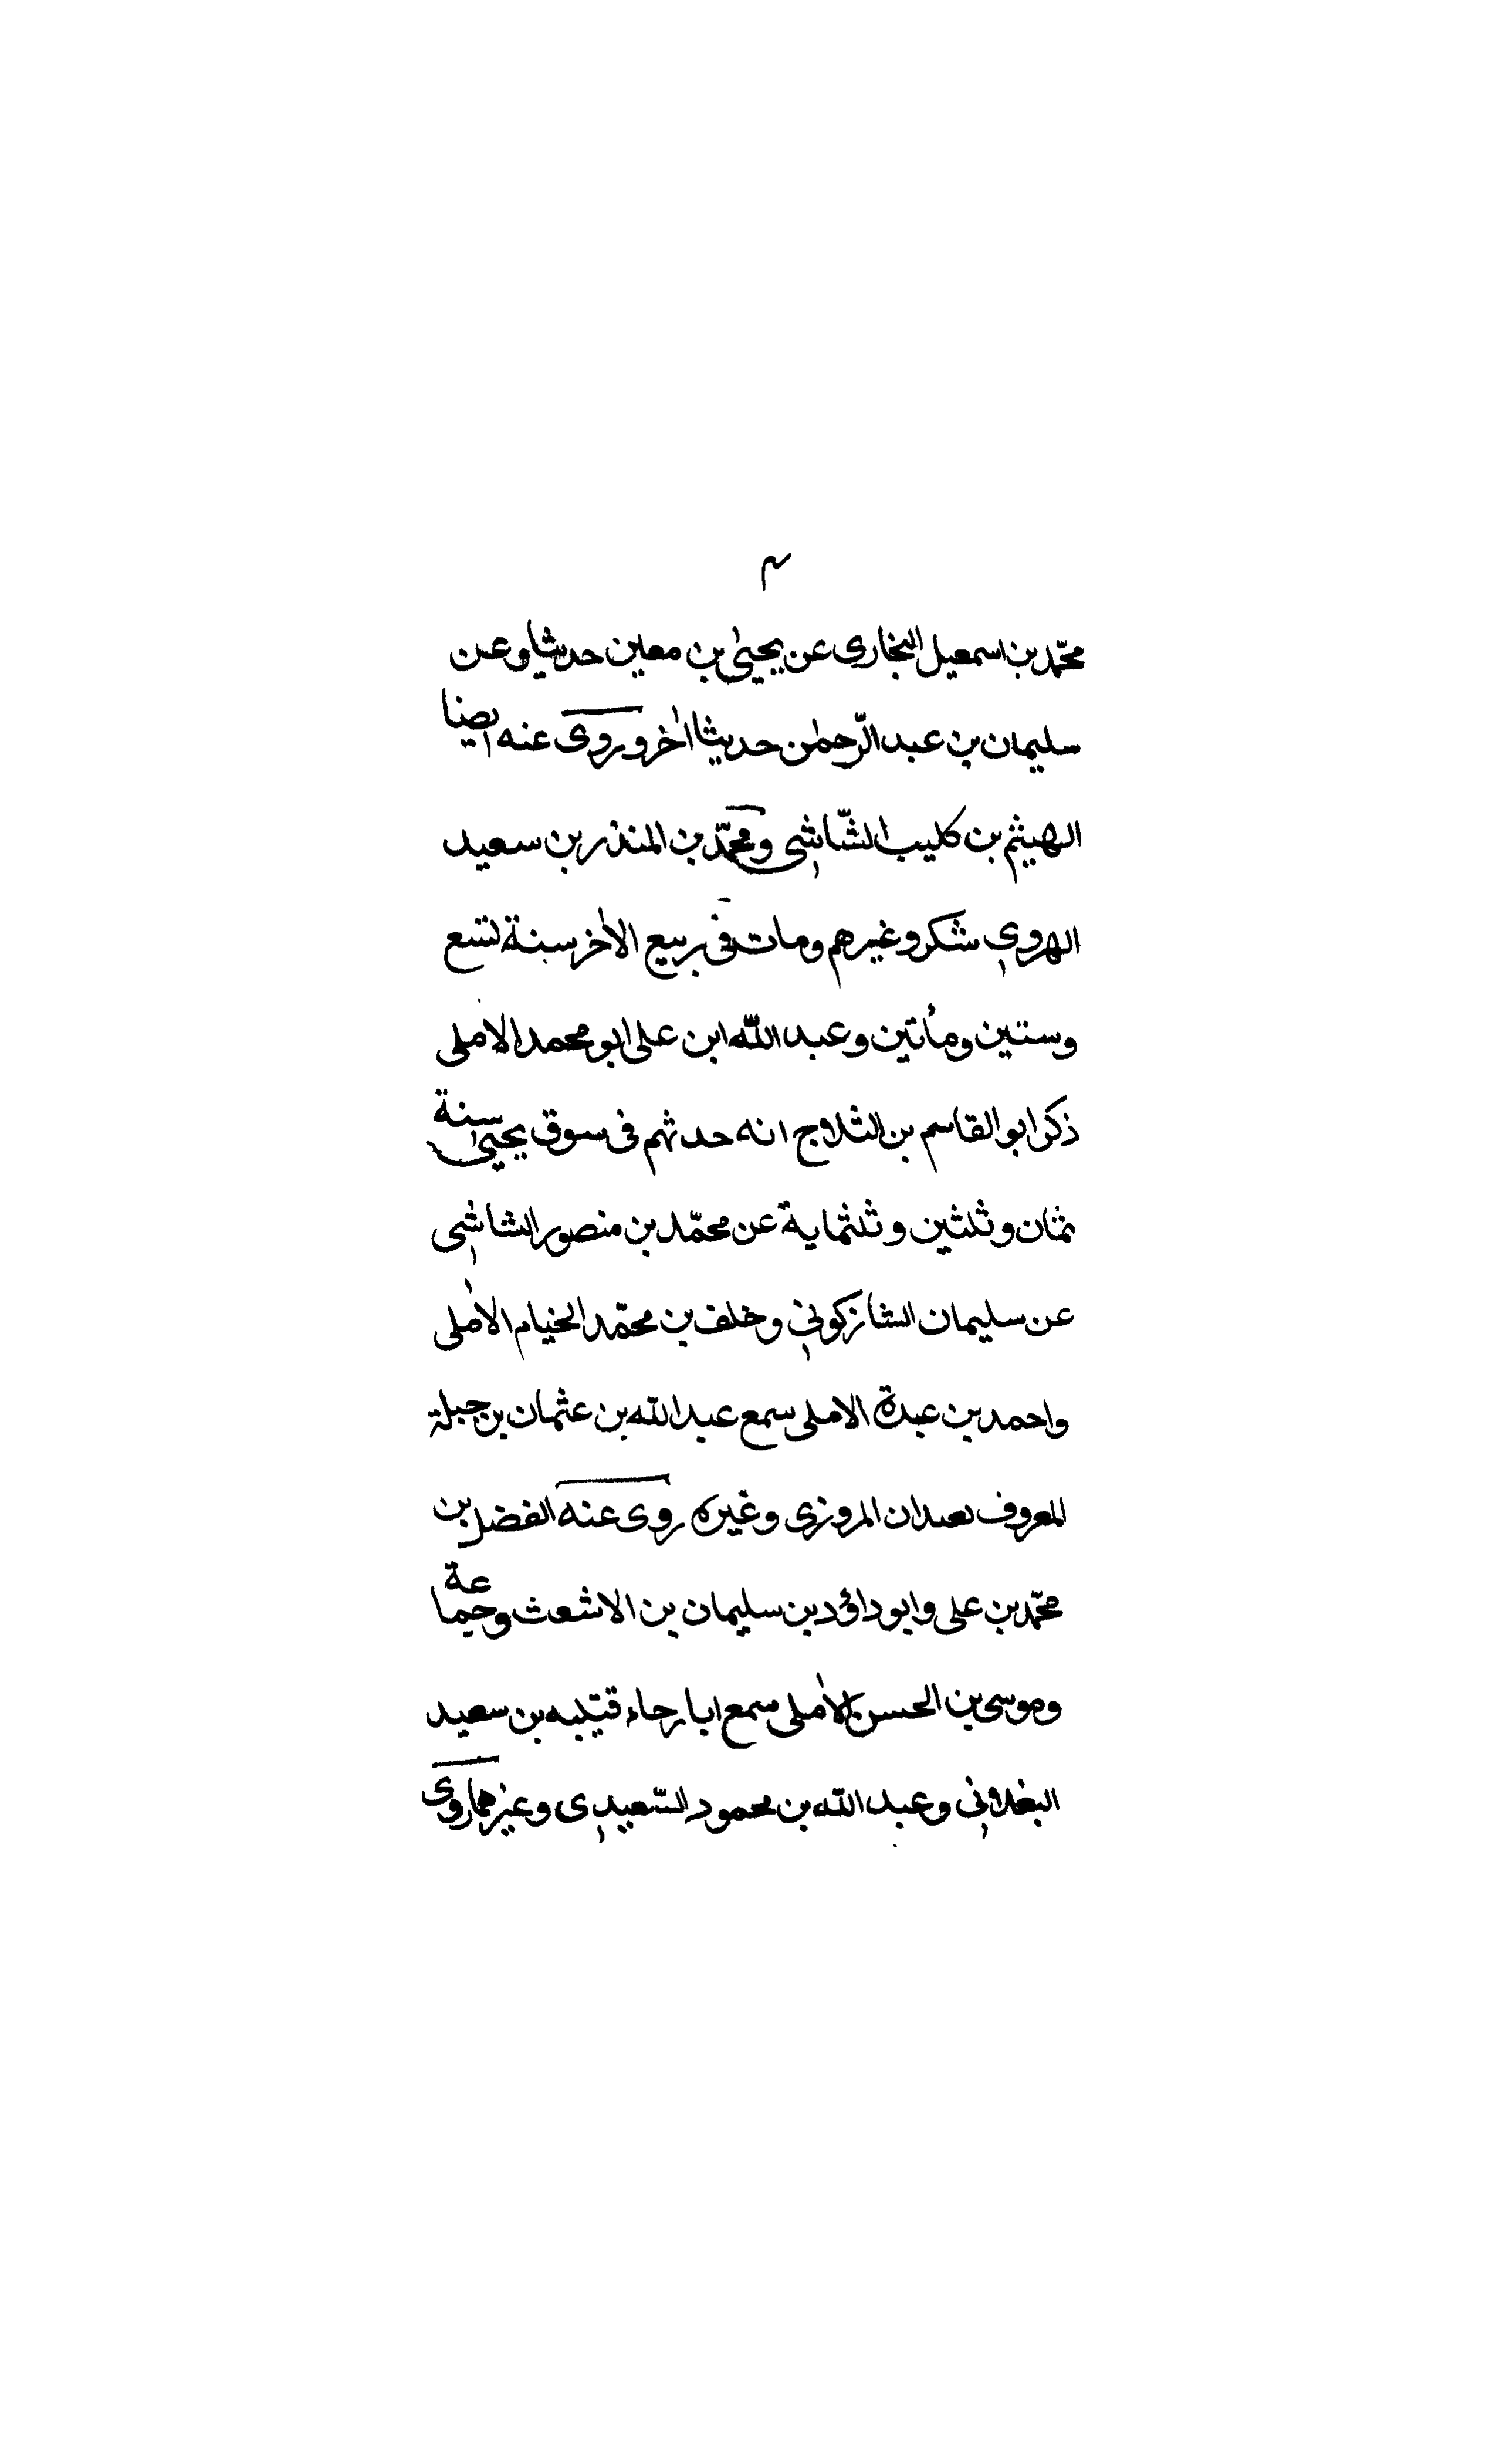 ٣
محمّد بن اسمعيل البخارى عن يحيىٰ بن معين حديثا وعن
سليمان بن عبد الرّحمٰن حديثا اٰخر وروى عنه ايضا
الهيثم بن كليب الشّاشى ومحمّد بن المنذر بن سعيد
الهروى شكر وغيرهم ومات فى ربيع الاٰخر سنة تسع
وستين ومأتين وعبد الله ابن على ابو محمد الاٰملى
ذكر ابو القاسم بن الثلاج انه حدثهم فى سوق يحيىٰ سنة
ثمان وثلثين وثلثماية عن محمّد بن منصور الشاشى
عن سليمان الشازكونى وخلف بن محمّد الخيام الاٰملى
واحمد بن عبدة الاملى سمع عبد الله بن عثمان بن جبلة
المعروف بعبدان المروزى وغيره روى عنه الفضل بن
محمّد بن على وابو داؤد بن سليمان بن الاشعث وجماعة
وموسى بن الحسن الاٰملى سمع ابا رجاء قتيبه بن سعيد
البغلانى وعبد الله بن محمود السّعيدى وغيرهما روى